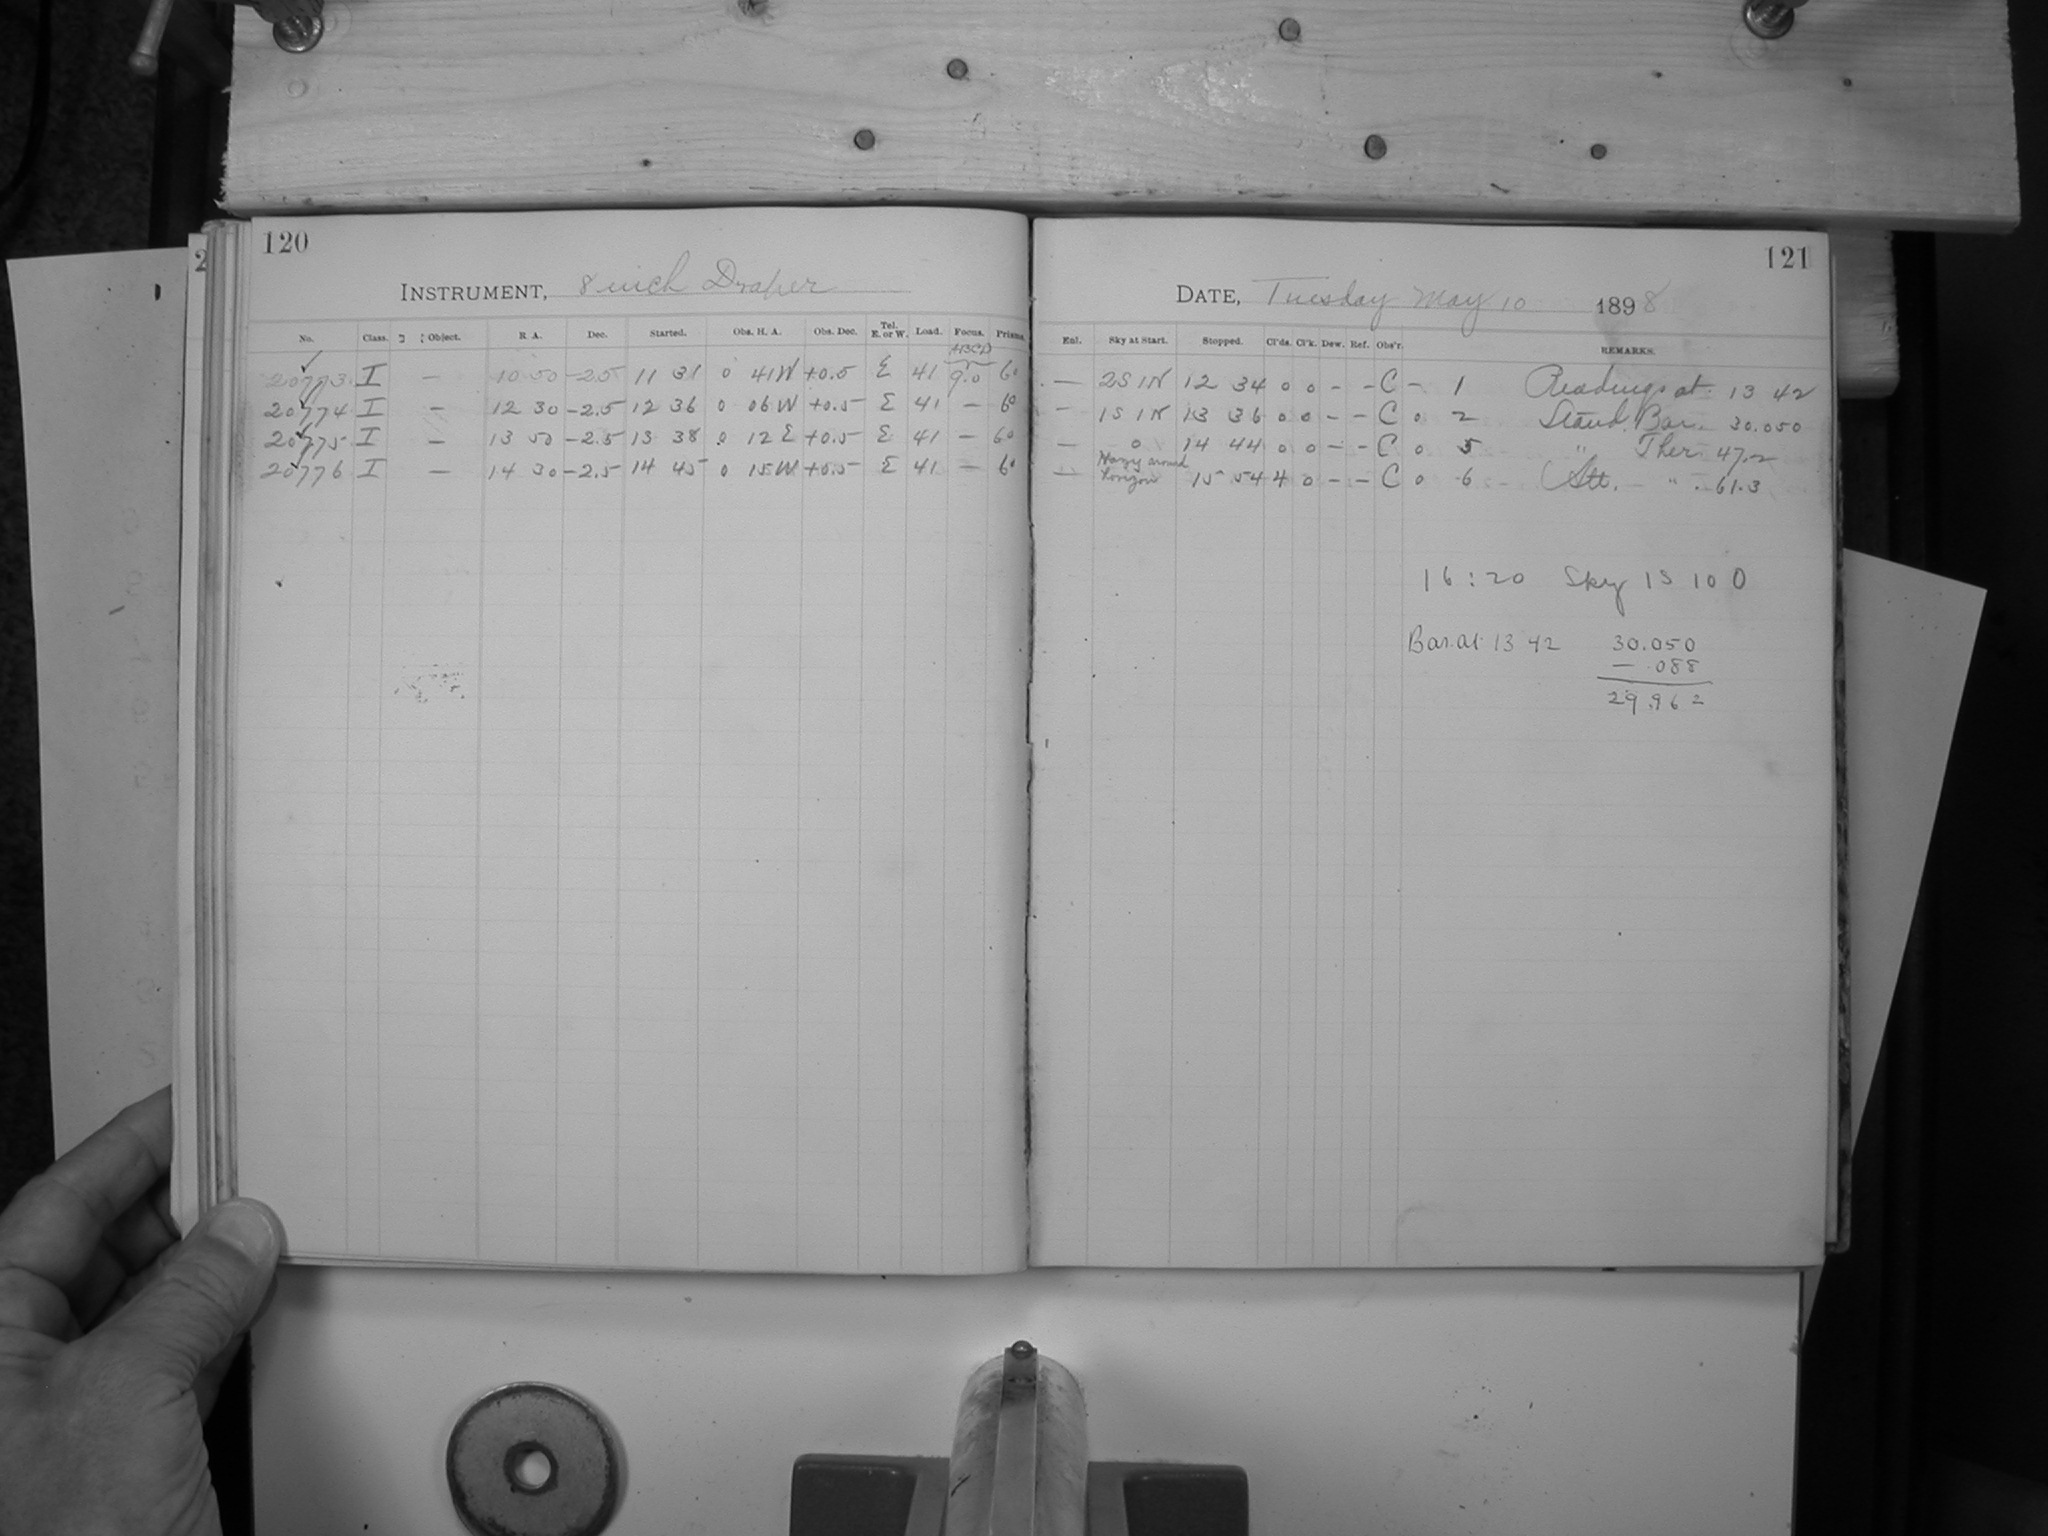 120
INSTRUMENT, 8 inch Draper
No. Class. Object. R A. Dec. Started. Obs. H. A. Obs. Dec. Tel. E. or W. Load. Focus. Prisms.
ABCD
20773 I — 10 50 -2.5 11 31 0 41W +0.5 E 41 9.0 60
20774 I — 12 30 -2.5 12 36 0 06W +0.5 E 41 — 60
20775 I — 13 50 -2.5 13 38 0 12E +0.5 E 41 — 60
20776 I — 14 30 -2.5 14 45 0 15W +0.5 E 41 — 60
121
DATE, Tuesday May 10 1898
Enl. Sky at Start. Stopped. Cl'ds. Cl'k. Dew. Ref. Obs'r. REMARKS.
— 2S 1N 12 34 0 0 - - C - 1 Readings at 13 42
— 1S 1N 13 36 0 0 - - C 0 2 Stand. Bar. 30.050
— 0 14 44 0 0 - - C 0 5 " Ther 47.2
— Hazy around horizon 15 54 4 0 - - C 0 6 Att. " 61.3
16:20 Sky is 10 0
Bar. at 13 42 30.050
— .088
29.962